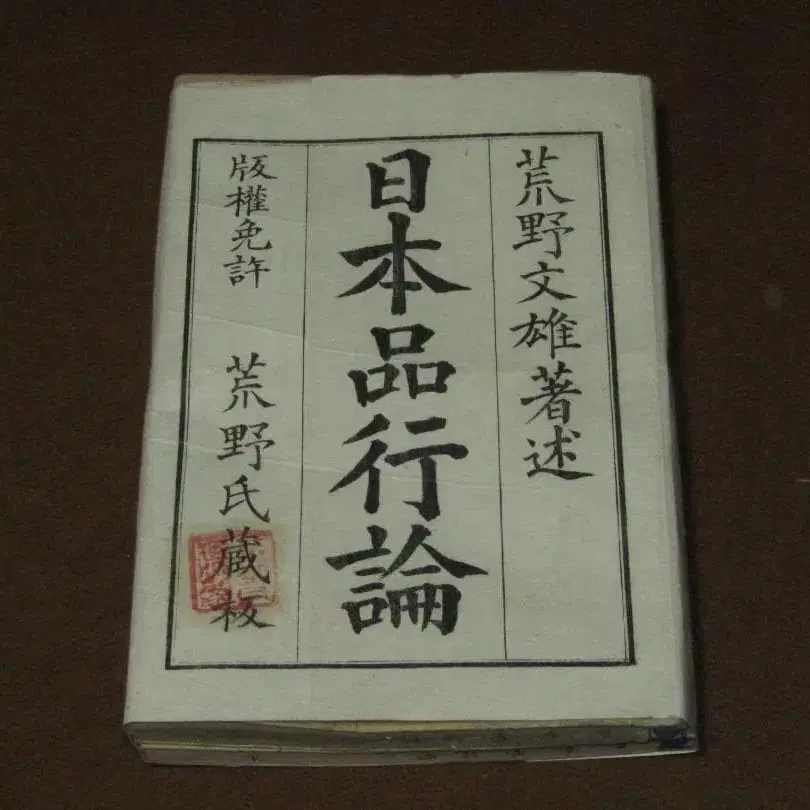 荒野文雄著述
日本品行論
版權免許 荒野氏蔵板